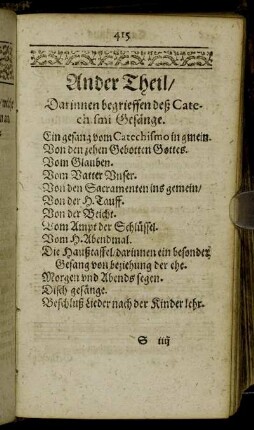 415
Ander Theil/
Darinnen begrieffen deß Cate-
chismi Gesänge.
Ein gesang vom Catechismo in gmein.
Von den zehen Gebotten Gottes.
Vom Glauben.
Vom Vatter Vnser.
Von den Sacramenten ins gemein/
Von der H. Tauff.
Von der Beicht.
Vom Ampt der Schlüssel.
Vom H. Abendmal.
Die Haußtaffel/darinnen ein besonder
Gesang von beziehung der ehe.
Morgen vnd Abends segen.
Disch gesänge.
Beschluß Lieder nach der Kinder lehr.
S iiij